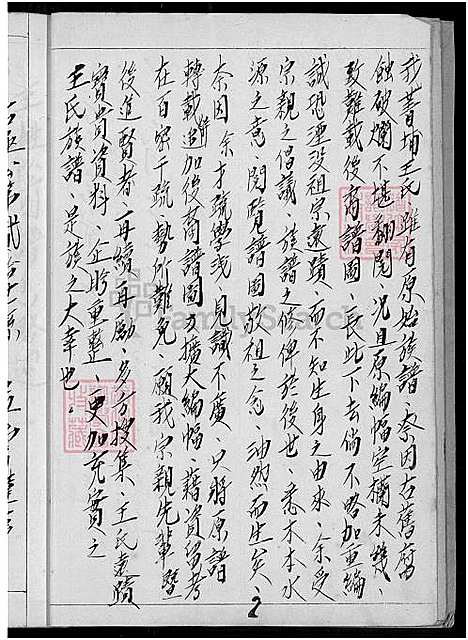 我菁埔王氏、雖有原始族譜、奈因古舊腐
蝕破爛不堪翻閱、況且原編幅空欄未幾、
致難載後裔譜圖、長此下去倘不略加重編
誠恐湮沒祖宗遺蹟、而不知生身之由來、余受
宗親之倡議、族譜之修俾於後世、悉木本水
源之意、閱覽譜圖敬祖之念、油然而生矣、
奈因余才疏學淺、見識不廣、只將原譜
轉載追加後裔譜圖及擴大編幅、藉資留考
在百密千疏、勢所難免、願我宗親先輩暨
後進賢者、再續再勵、多方搜集、王氏遺蹟
寶貴資料、企盼重整、更加充實之
王氏族譜、是族之大幸也、
FamilySearch
2